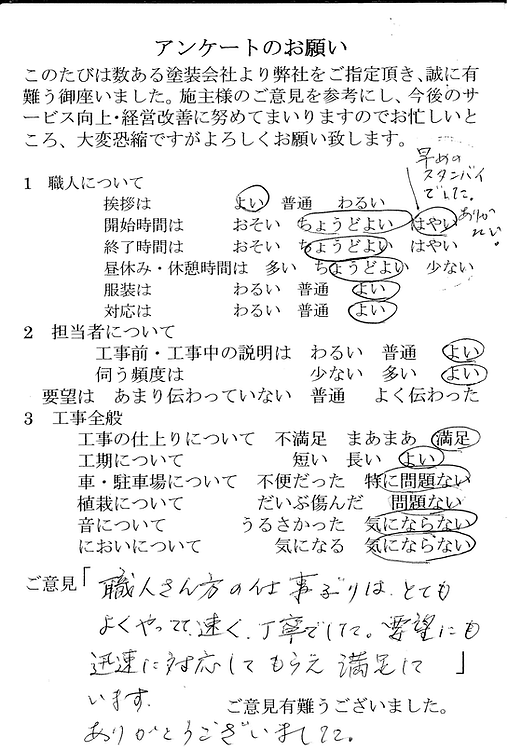 アンケートのお願い
このたびは数ある塗装会社より弊社をご指定頂き、誠に有
難う御座いました。施主様のご意見を参考にし、今後のサ
ービス向上・経営改善に努めてまいりますのでお忙しいと
ころ、大変恐縮ですがよろしくお願い致します。
早めの
スタンバイ
でした。
ありが
たい。
1 職人について
挨拶は よい 普通 わるい
開始時間は おそい ちょうどよい はやい
終了時間は おそい ちょうどよい はやい
昼休み・休憩時間は 多い ちょうどよい 少ない
服装は わるい 普通 よい
対応は わるい 普通 よい
2 担当者について
工事前・工事中の説明は わるい 普通 よい
伺う頻度は 少ない 多い よい
要望は あまり伝わっていない 普通 よく伝わった
3 工事全般
工事の仕上りについて 不満足 まあまあ 満足
工期について 短い 長い よい
車・駐車場について 不便だった 特に問題ない
植栽について だいぶ傷んだ 問題ない
音について うるさかった 気にならない
においについて 気になる 気にならない
ご意見「職人さん方の仕事ぶりは、とても
よくやって、速く、丁寧でした。要望にも
迅速に対応してもらえ満足して 」
います。
ご意見有難うございました。
ありがとうございました。